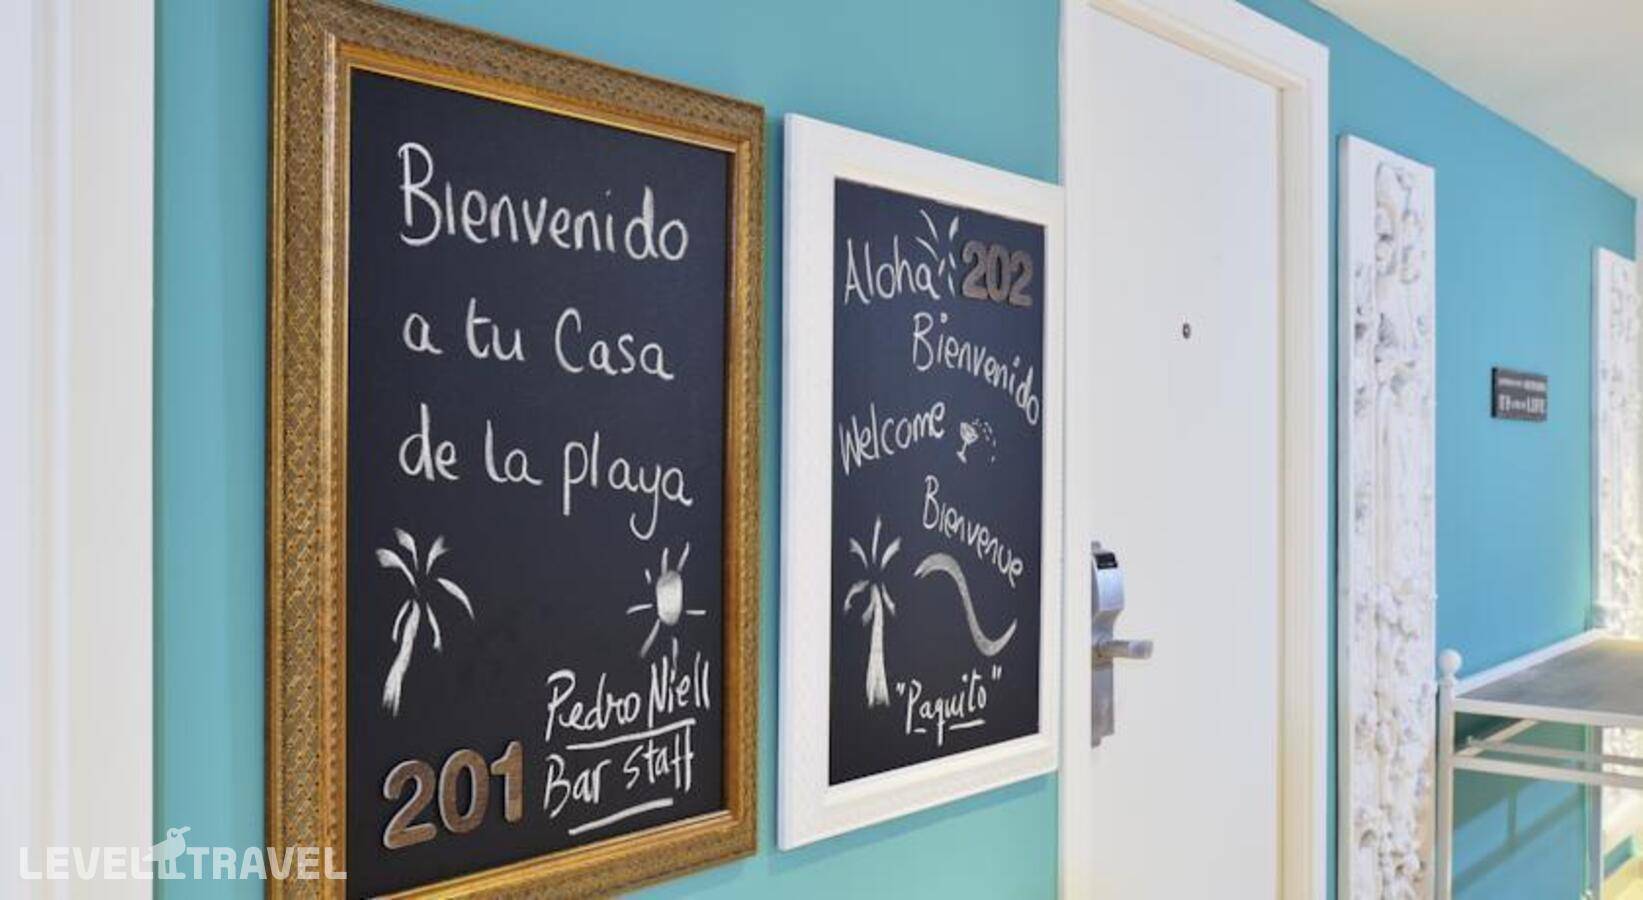 Bienvenido
a tu Casa
de la playa
Pedro Niell
Bar staff
201
Aloha 202
Bienvenido
Welcome
Bienvenue
"Paquito"
LEVEL TRAVEL